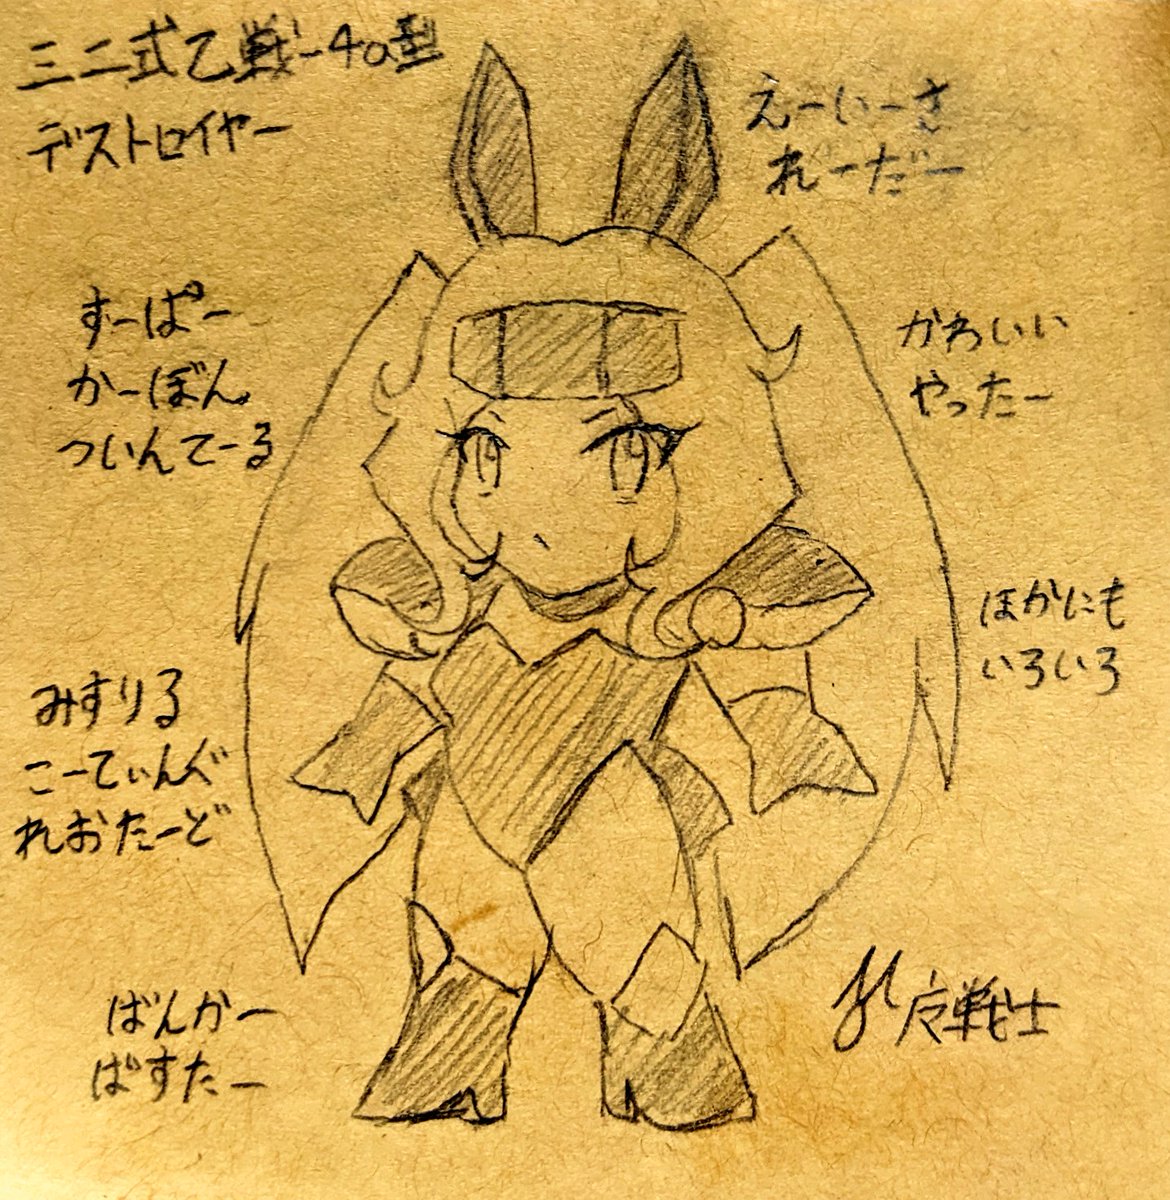 三二式乙戦-4a型
デストロイヤー
えーいーさ
れーだー
すーぱー
かーぼん
ついんてーる
かわいい
やったー
ほかにも
いろいろ
みすりる
こーてぃんぐ
れおたーど
ばんかー
ばすたー
戦士